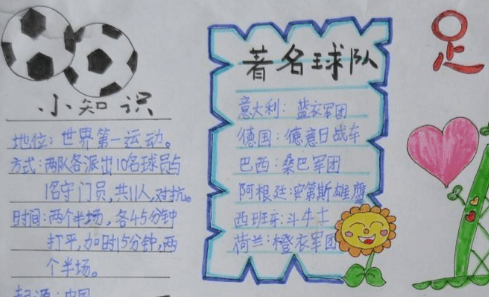 小知识
地位：世界第一运动。
方式：两队各派出10名球员与
1名守门员，共11人，对抗。
时间：两个半场，各45分钟
打平，加时15分钟，两
个半场。
起源：中国
著名球队
意大利：蓝衣军团
德国：德意日战车
巴西：桑巴军团
阿根廷：安第斯雄鹰
西班牙：斗牛士
荷兰：橙衣军团
足